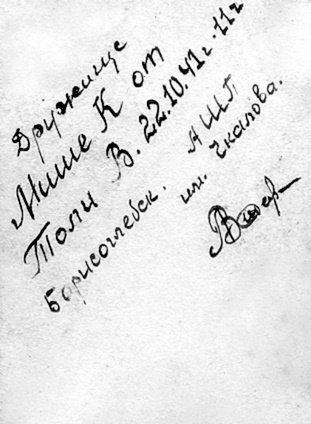 Дружище
Мише К от
Толи В. 22.10.41г. 11г
Борисоглебск. АШП
им. Чкалова.